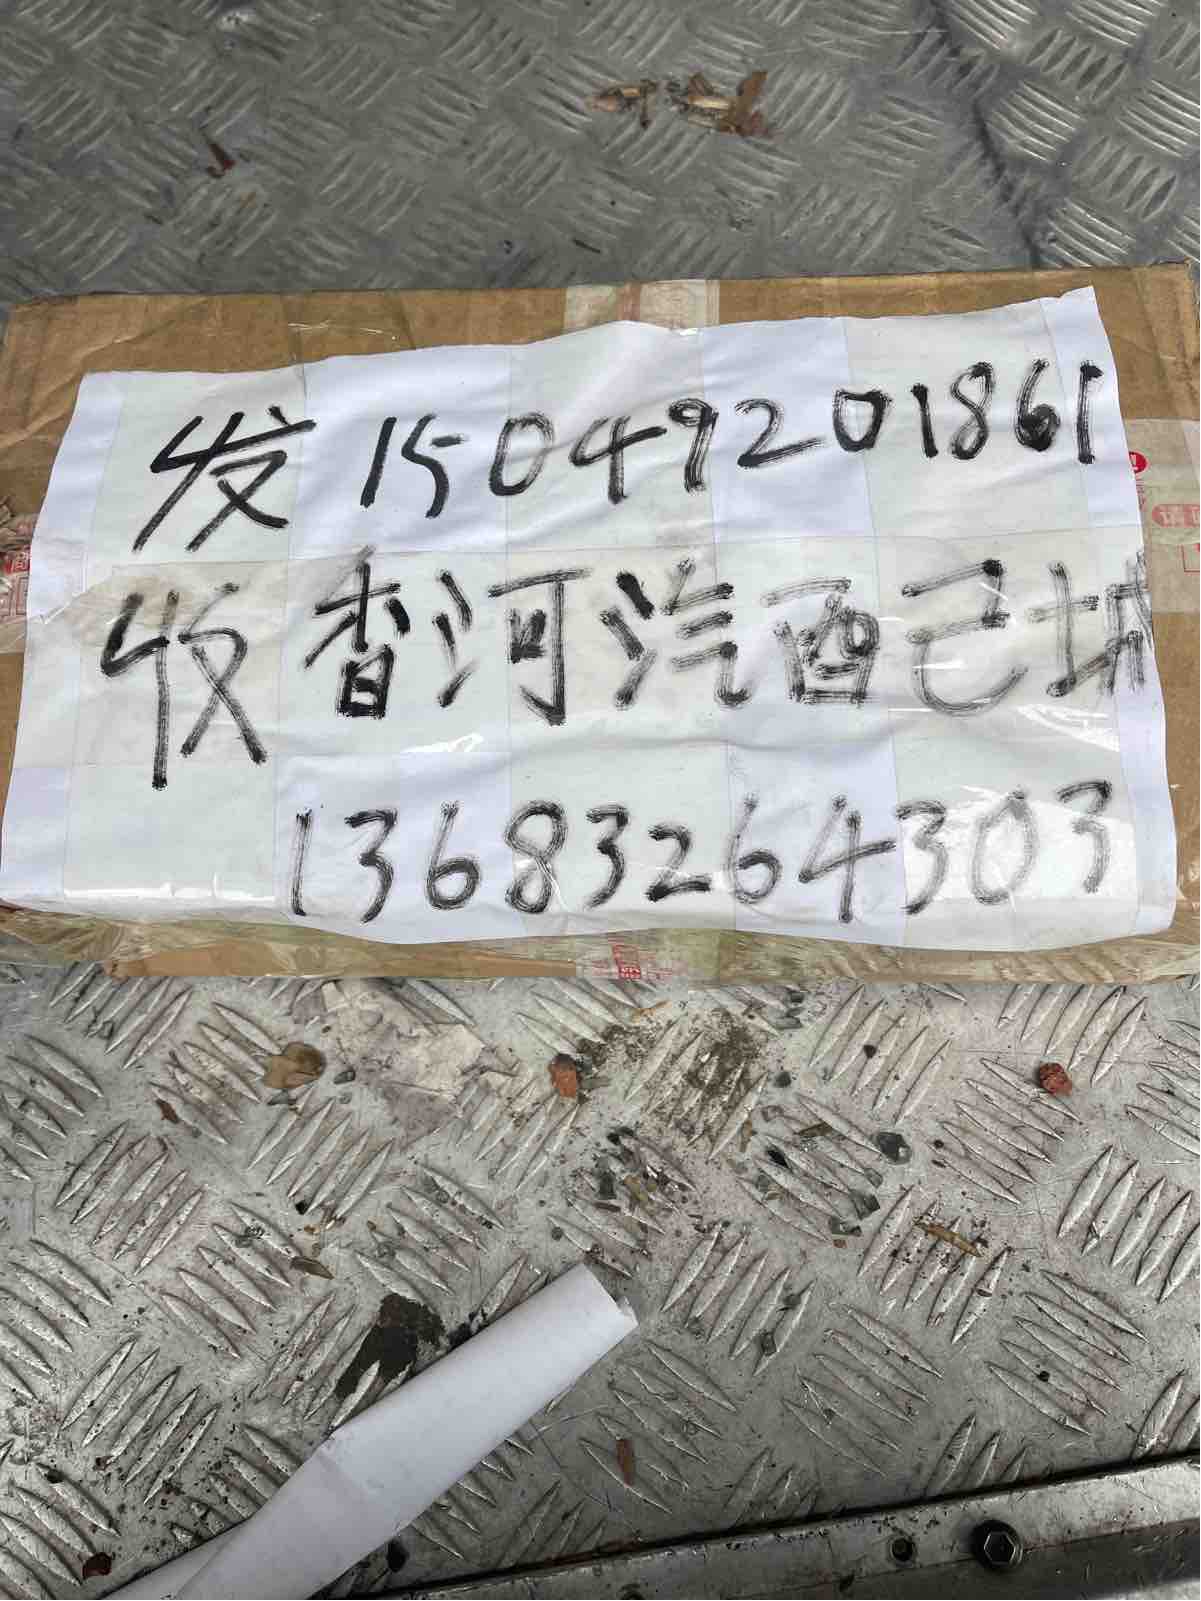 发 15049201861
收 香河汽配城
13683264303